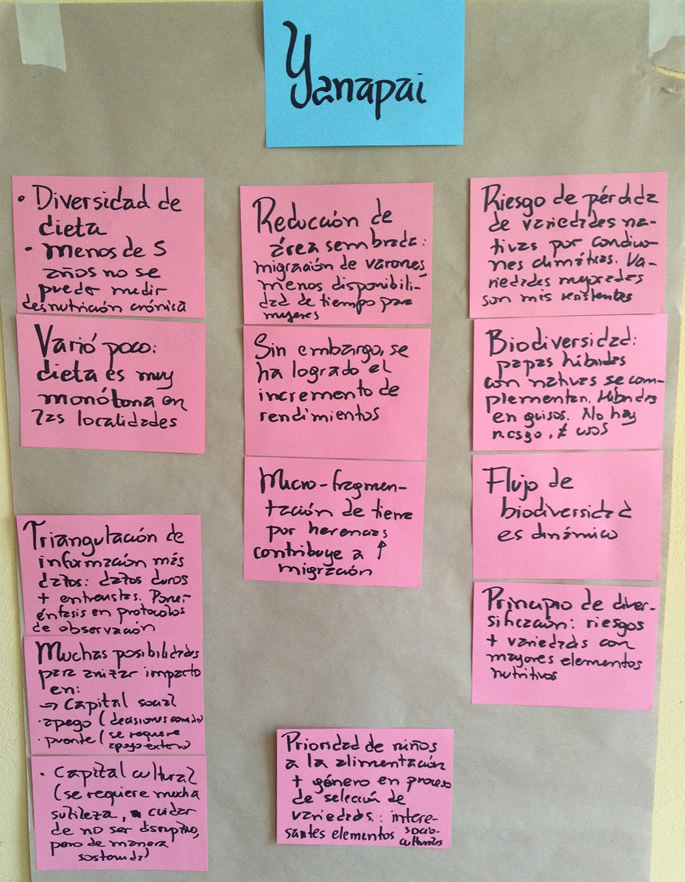 Yanapai
• Diversidad de
dieta
• Menos de 5
años no se
puede medir
desnutrición crónica
Varió poco:
dieta es muy
monótona en
las localidades
Triangulación de
información más
datos: datos duros
+ entrevistas. Poner
énfasis en protocolos
de observación
Muchas posibilidades
para analizar impacto
en:
→ Capital social
• apego (decisiones
• puente (se requiere
apoyo externo)
• Capital cultural
(se requiere mucha
sutileza, cuidar
de no ser disruptivo,
pero de manera
sostenida)
Reducción de
área sembrada:
migración de varones,
menos disponibili-
dad de tiempo para
mujeres
Sin embargo, se
ha logrado el
incremento de
rendimientos
Micro-fragmen-
tación de tierra
por herencias
contribuye a ↑
migración
Prioridad de niños
a la alimentación
+ género en proceso
de selección de
variedades: intere-
santes elementos socio-
culturales
Riesgo de pérdida
de variedades na-
tivas por condicio-
nes climáticas. Va-
riedades mejoradas
son más resistentes
Biodiversidad:
papas híbridas
con nativas se com-
plementan. Híbridas
en guisos. No hay
riesgo, ≠ usos
Flujo de
biodiversidad
es dinámico
Principio de diver-
sificación: riesgos
+ variedades con
mayores elementos
nutritivos